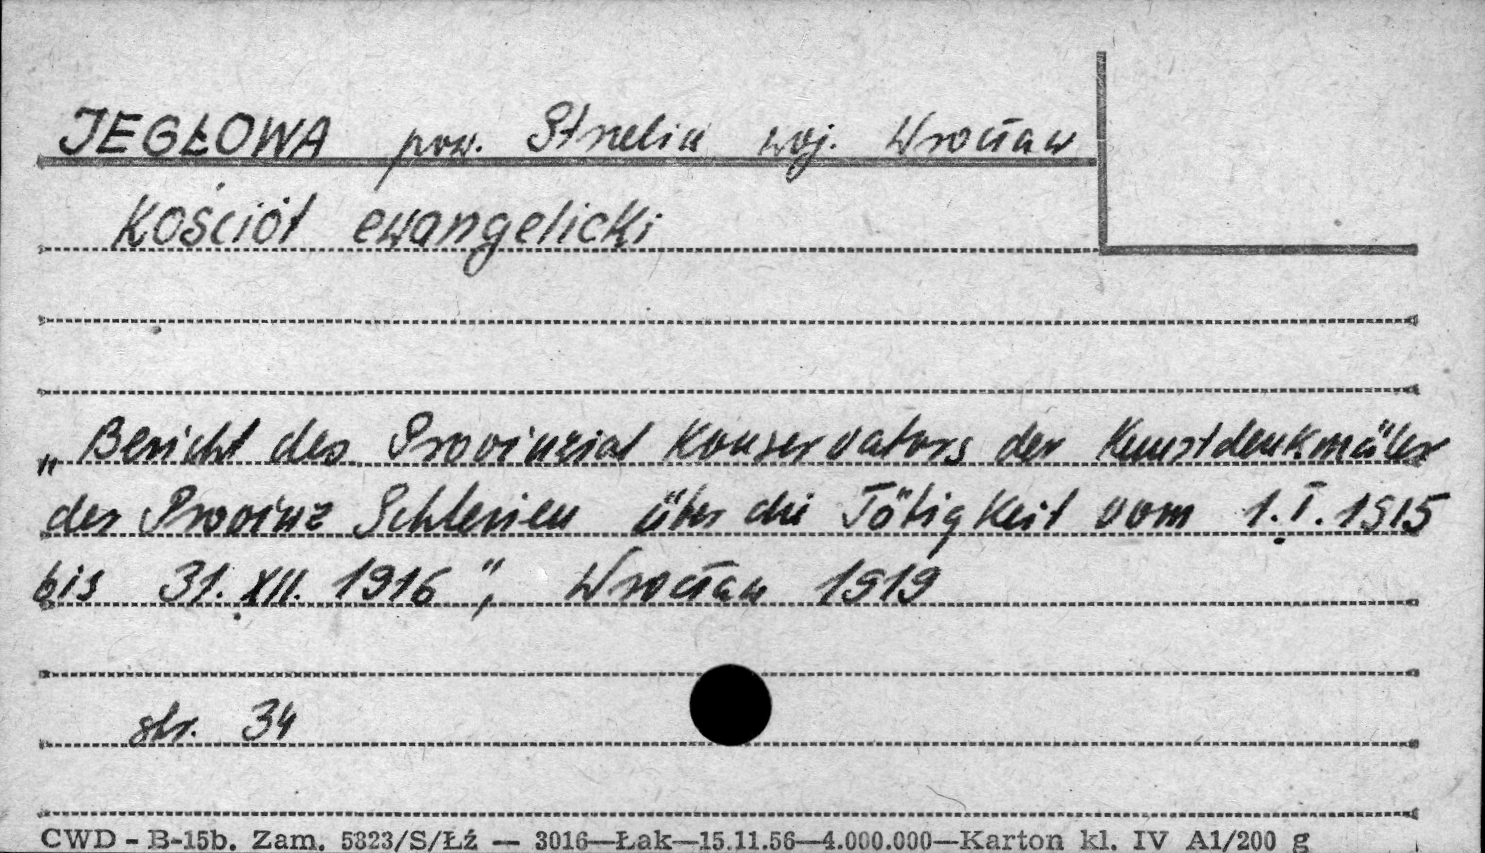 JEGŁOWA pow. Strzelin woj. Wrocław
Kościół ewangelicki
„Bericht des Provinzial Konservators der Kunstdenkmäler
der Provinz Schlesien über die Tätigkeit vom 1.I.1915
bis 31.XII.1916", Wrocław 1919
str. 34
CWD - B-15b. Zam. 5823/S/Łź — 3016—Łak—15.11.56—4.000.000—Karton kl. IV A1/200 g